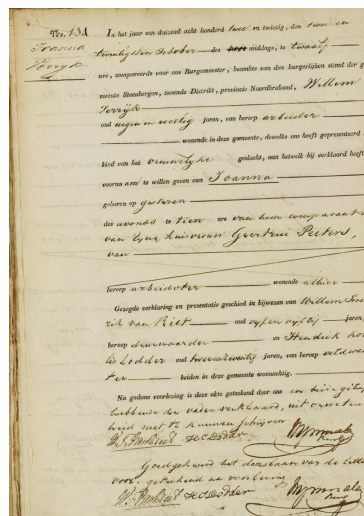 No. 131
Joanna
In het jaar een duizend acht honderd twee en twintig, den twee en
twintigsten October des middags, te twaalf
ure, compareerde voor ons Burgemeester, beambte van den burgerlijken stand der g
meente Steenbergen, zevende Distrikt, provincie Noordbraband, Willem
oud negen en veertig jaren, van beroep arbeider
wonende in deze gemeente, dewelke ons heeft gepresenteerd
kind van het vrouwelijke geslacht, aan hetwelk hij verklaard heeft
voornaam te willen geven van Joanna
geboren op gisteren
des avonds te tien ure van hem comparant e
van zijne huisvrouw Geertrui Peeters,
van
beroep arbeidster wonende alhier
Gezegde verklaring en presentatie geschied in bijwezen van Willem
rik van Riet oud vijf en vijftig jaren,
beroep deurwaarder en Hendrik
lis Lodder oud twee en twintig jaren, van beroep veldwach
ter beiden in deze gemeente woonachtig.
Na gedane voorlezing is deze akte geteekend door ons en beide getuig
hebbende de vader verklaard, uit onweten
heid niet te kunnen schrijven
Goedgekeurd het doorhalen van de letter
voor, geteekend na voorlezing